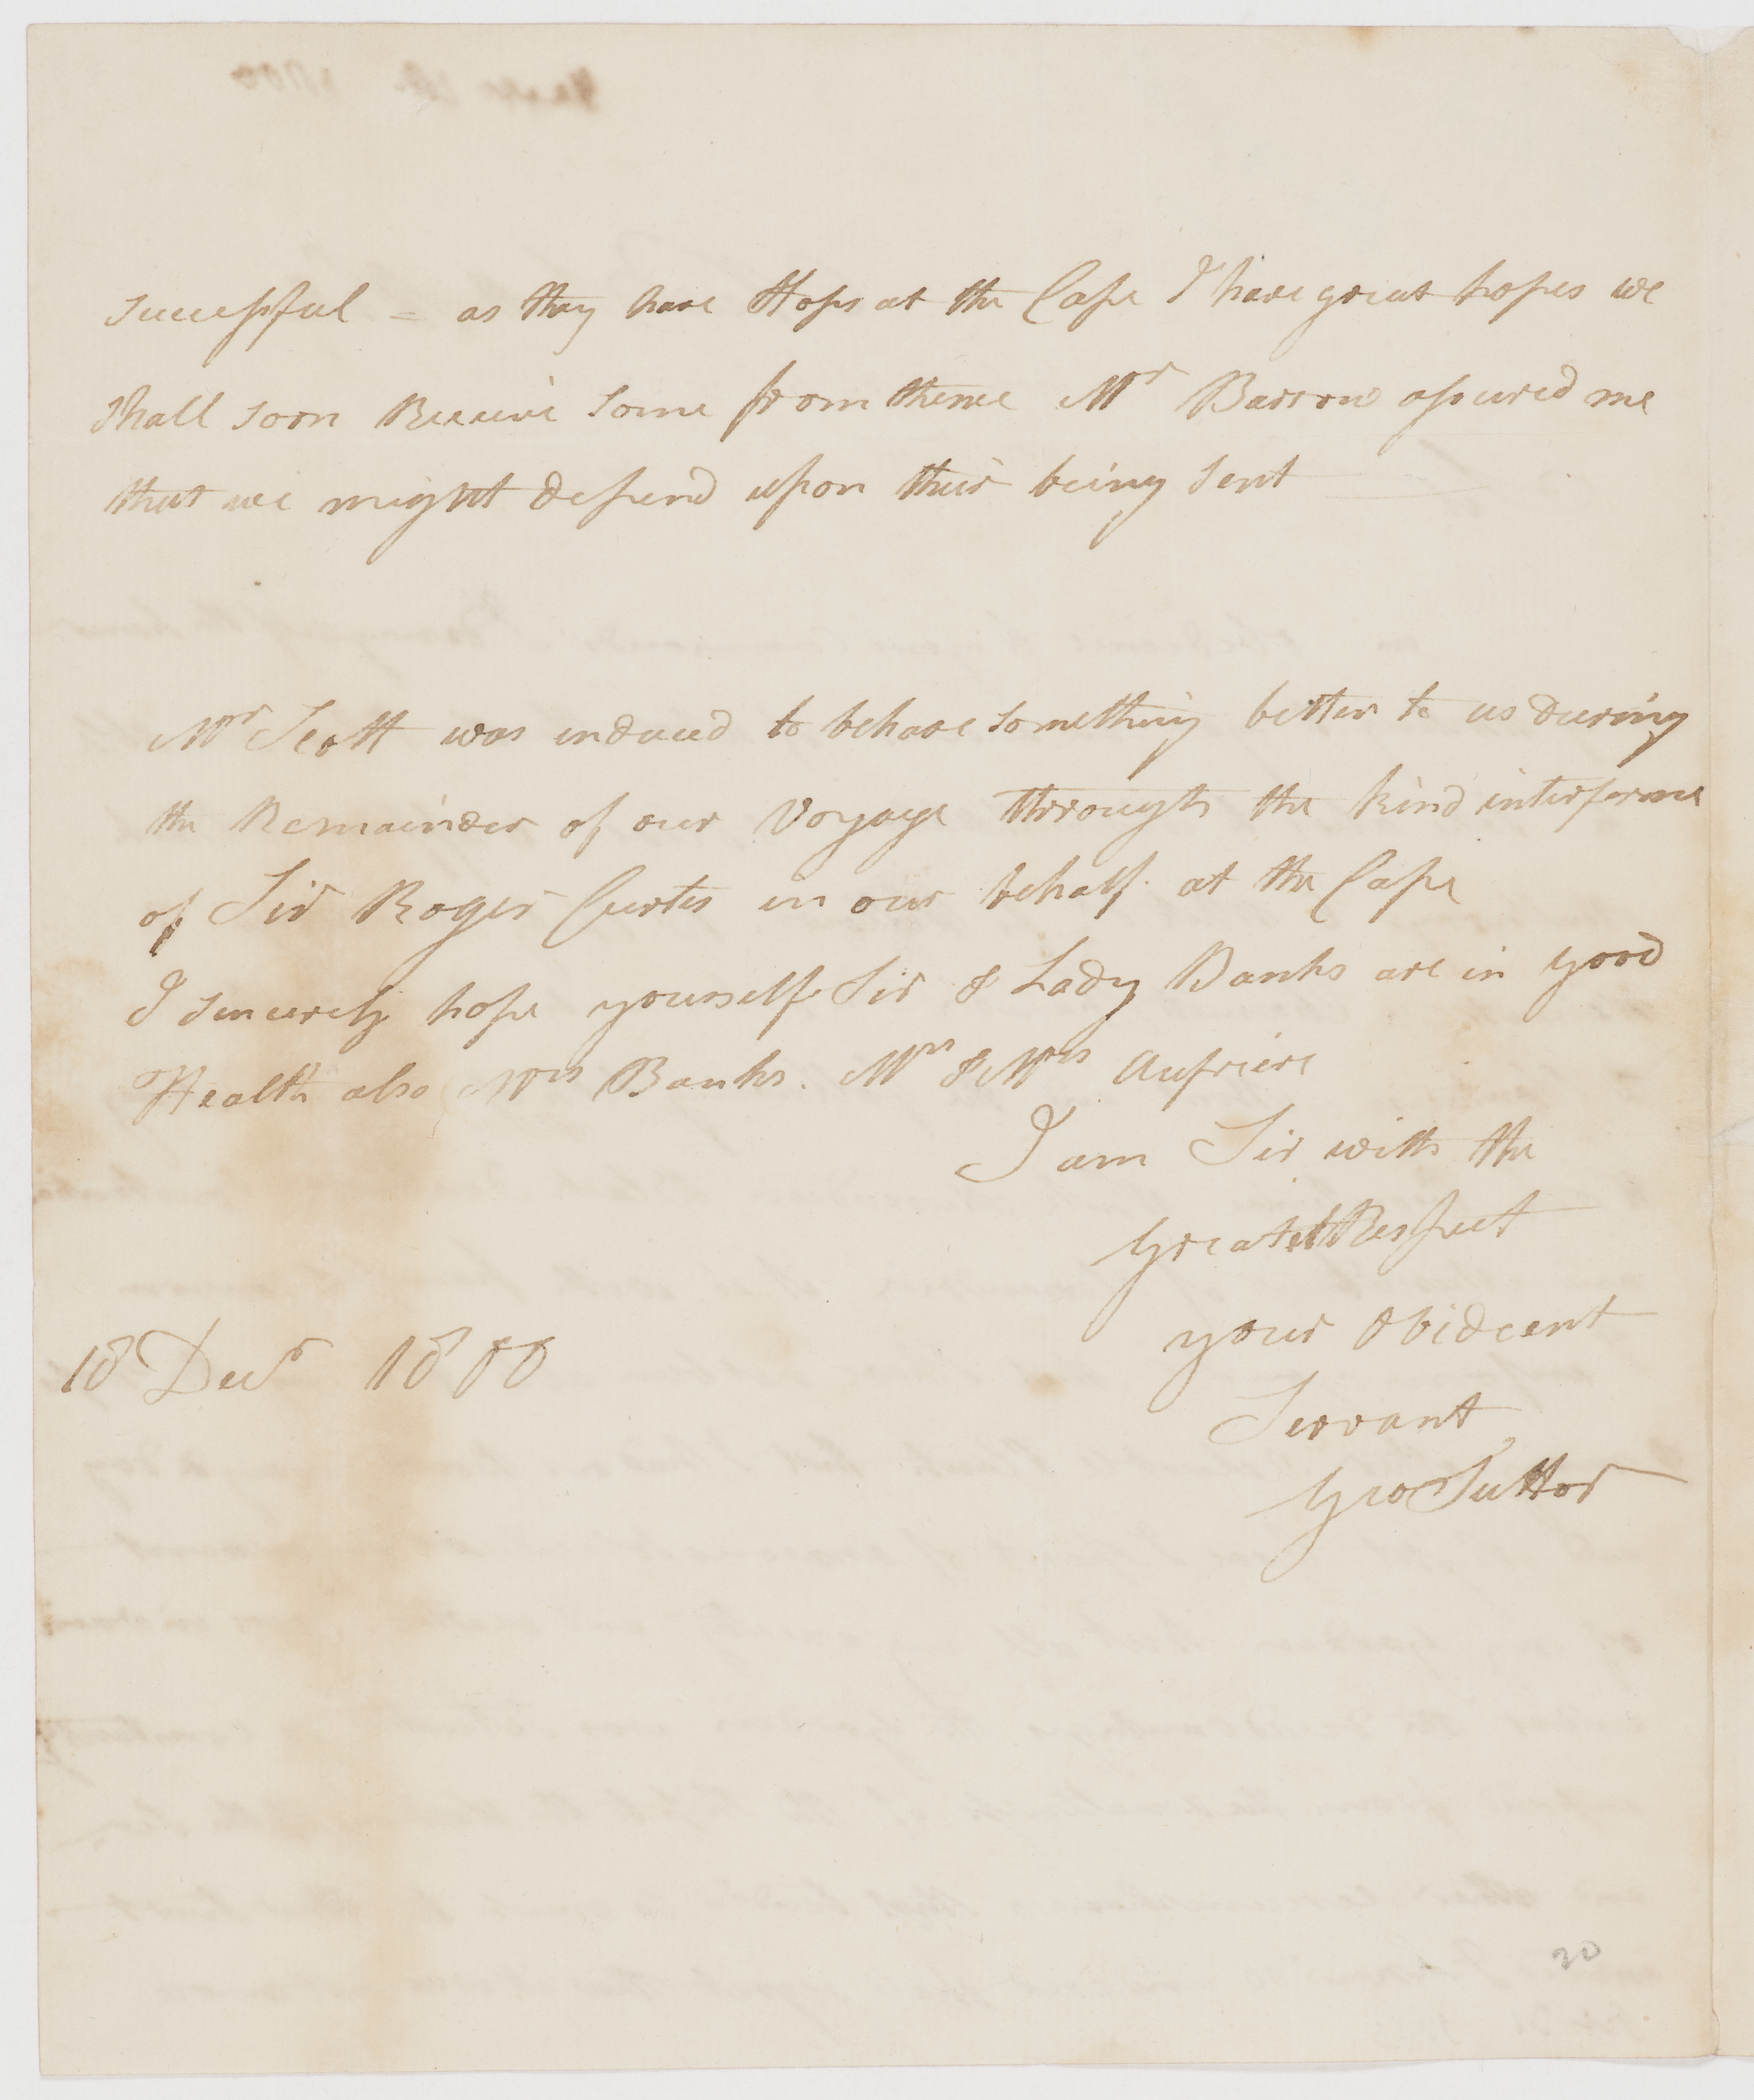 successful - as they have Hops at the Cape I have great hopes we
shall soon Receive some from thence Mr Barrow assured me
that we might depend upon their being sent
Mr Scott was induced to behave something better to us during
the Remainder of our Voyage through the kind interferance
of Sir Roger Curtis in our behalf. at the Cape
I sincerely hope yourself Sir & Lady Banks are in good
Health also Mrs Banks. Mr & Mrs Aufriere
I am Sir with the
Greatest Respect
your Obideent
Servant
Geo Suttor
18 Decr 1800
20